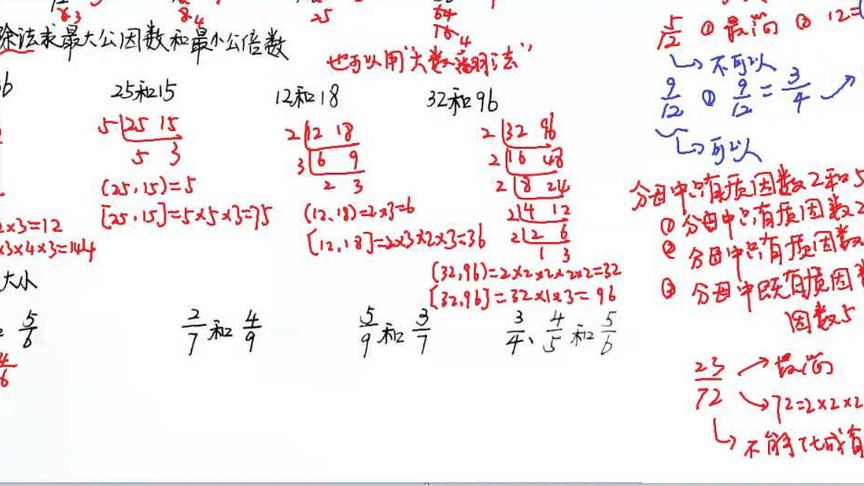 除法求最大公因数和最小公倍数
也可以用"大数翻倍法"
25和15
12和18
32和96
5 25 15
5 3
(25,15)=5
[25,15]=5×5×3=75
2 12 18
3 6 9
2 3
(12,18)=2×3=6
[12,18]=2×3×2×3=36
2 32 96
2 16 48
2 8 24
2 4 12
2 2 6
1 3
(32,96)=2×2×2×2×2=32
[32,96]=32×1×3=96
2×3=12
×3×4×3=144
大小
5/6
2/7和4/9
5/9和3/7
3/4、4/5和5/6
5/12 ①最简 ②12=
不可以
9/12 ① 9/12=3/4
可以
分母中只有质因数2和5
①分母中只有质因数2
②分母中只有质因数
③分母中既有质因数
因数5
23/72 最简
72=2×2×2
不能化成有